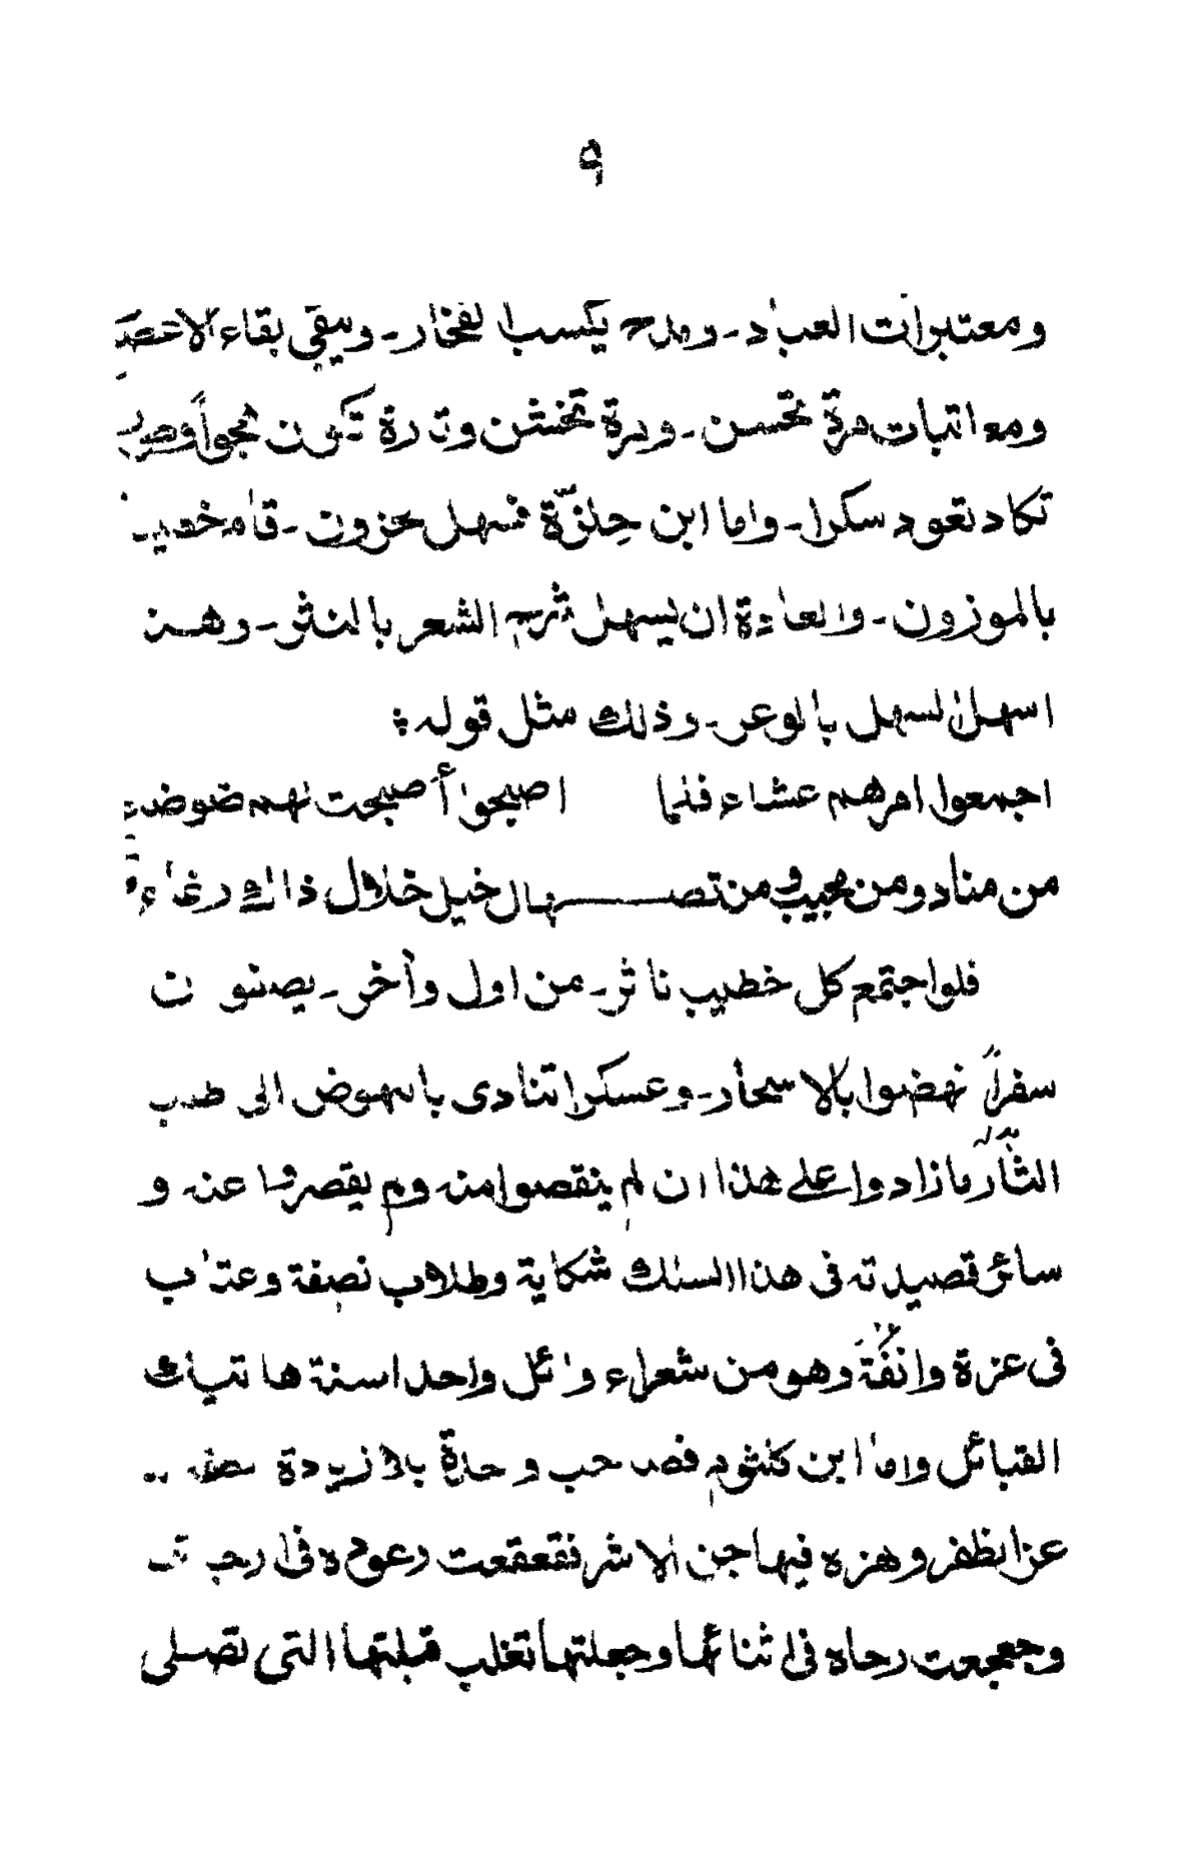 ٩
ومعتبرات العباد ـ ومدح يكسب الفخار ـ ويبقى بقاء
ومعاتبات مرة تحسن ـ ومرة تخشن وتارة تكون هجواً
تكاد تعود سكرا ـ واما ابن حِلزّة فسهل حزون ـ قام خطيبا
بالموزون ـ والعادة ان يسهل شرح الشعر بالنثر ـ وهذا
اسهل السهل بالوعر ـ وذلك مثل قوله
اجمعوا امرهم عشاء فلما اصبحوا أصبحت لهم ضوضاء
من مناد ومن مجيب ومن تصهال خيل خلال ذاك رغاء
فلو اجتمع كل خطيب ناثر ـ من اول وأخر ـ يصفون
سفراً نهضوا بالاسحار ـ وعسكرا تنادى بالنهوض الى طلب
الثأر ما زادوا على هذا ان لم ينقصوا منه ولم يقصروا عنه و
سائر قصيدته فى هذا السلك شكاية وطلاب نصفة وعتاب
فى عزة وانفة وهو من شعراء وائل واحد اسنة هاتيك
القبائل واما ابن كلثوم فصاحب واحدة بلا زيادة
عزا لظفر وهزه فيها جن الاشر فقعقعت رعوده فى ارجائها
وجعجعت رحاه فى اثنائها وجعلتها تغلب قبلتها التى تصلى